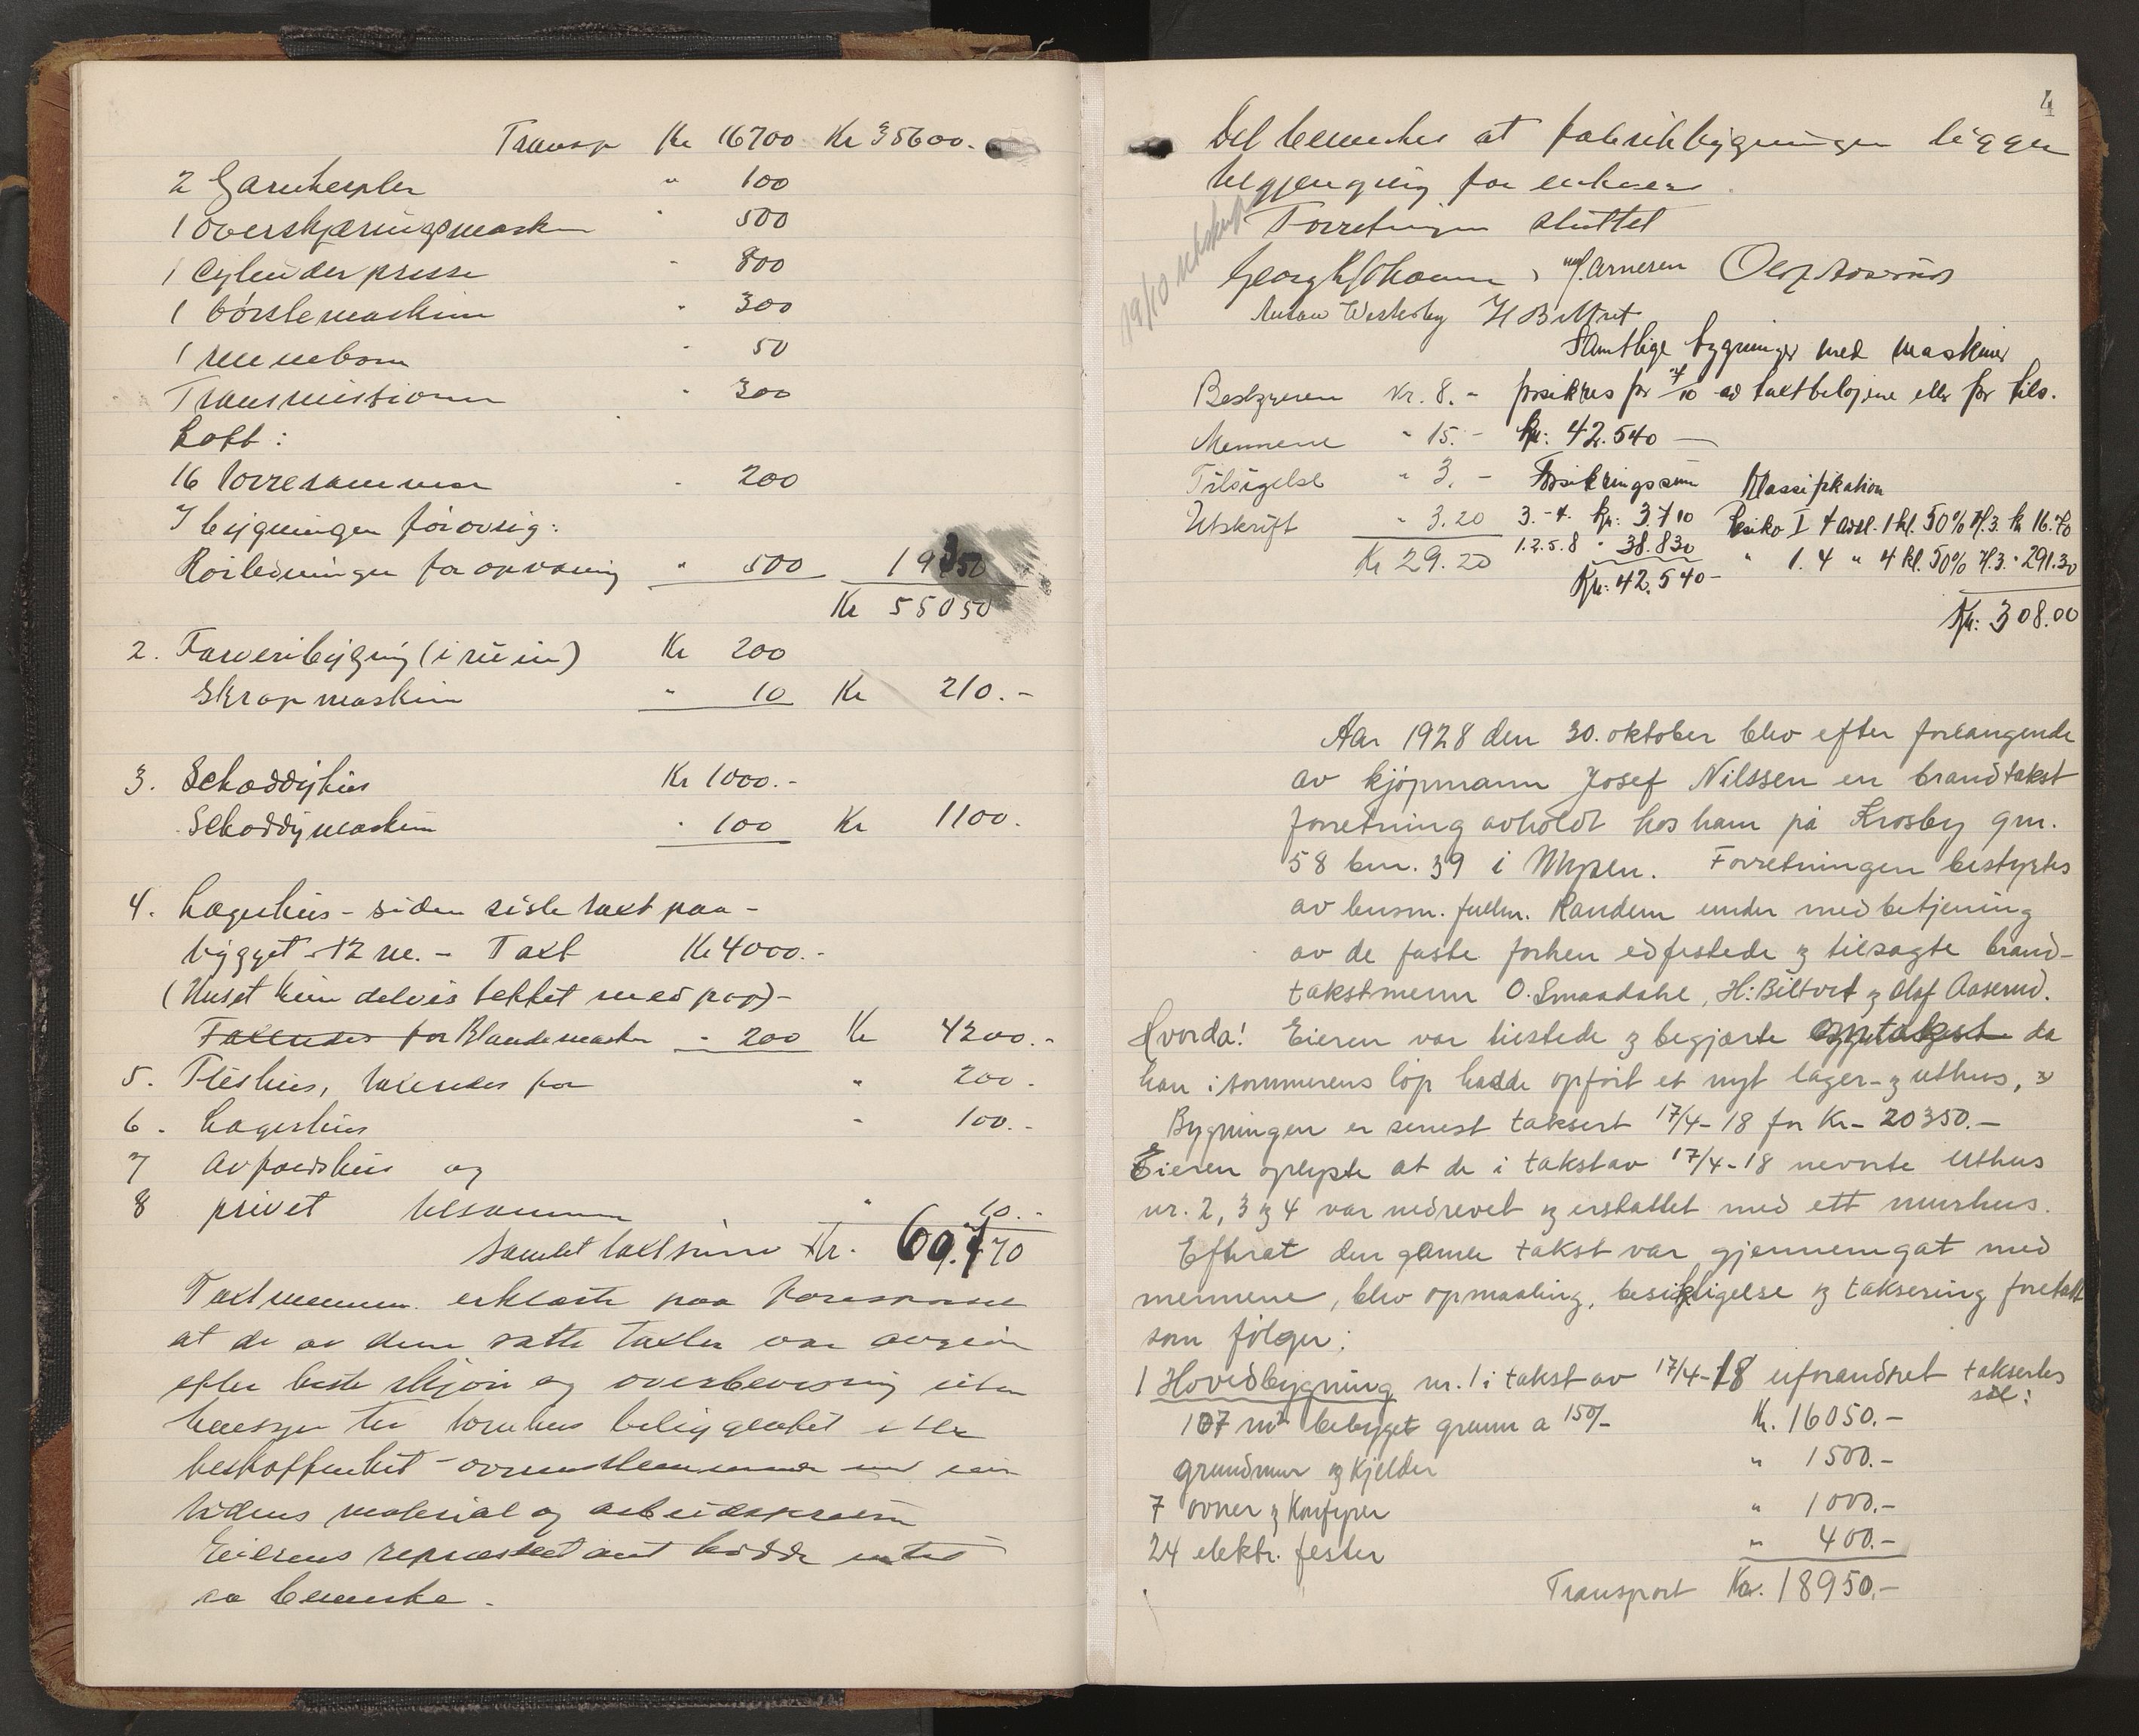 Transp Kr 16700 Kr 35600.
2 Garnhespler " 100
1 overskjæringsmaskin " 500
1 Cylinderpresse " 800
1 børstemaskin " 300
1 rennebom " 50
Transmissioner " 300
Loft:
16 tørrerammer " 200
I bygningen forøvrig:
Rørledninger for opvarming " 500 19450
Kr 55050
2. Farveribygning (i ruin) Kr 200
Skrapmaskin " 10 Kr 210.-
3. Schoddyhus Kr 1000.-
Schoddymaskin " 100 Kr 1100.
4. Lagerhus - siden siste taxt paa-
bygget 12 m. - Taxt Kr 4000.-
(Huset kun delvis tekket med pap)-
Taxeres for Blandemaskin - 200 Kr 4200.-
5. Flishus, taxeres for " 200.
6. Lagerhus - 100.-
7 Avfaldshus og
8 privet tilsammen " 10.-
Samlet taxtsum Kr. 60.770
Taxtmennene erklærte paa forespørsel
at de av dem satte taxter var avgivne
efter beste skjøn og overbevisning uten
hensyn til tomtens beliggenhet eller
beskaffenhet - overensstemmende med
tidens material og arbeidspriser
Eierens repræsentant hadde intet
aa bemerke.
4
Det bemerkes at fabrikbygningen ligger
tilgjengelig for enhver.
Forretningen sluttet
19/10 utskrift
Arnesen Olaf Aaserud
Anton Westerby H Biltvet
Samtlige bygninger med maskiner
Bestyreren Kr. 8.- forsikres for 7/10 av taxtbeløpene eller for tils.
Mennene " 15.- Kr: 42.540 —
Tilsigelse " 3.- Forsikringssum Klassifikation
Utskrift " 3.20 3.-4. Kr: 3.710 Risiko I 4 avd. 1 kl. 50% H.3. kr 16.70
Kr 29.20 1.2.5.8 " 38.830 " 1. 4 " 4 kl. 50% H.3. " 291.30
Kr: 42.540- Kr: 308.00
Aar 1928 den 30. oktober blev efter forlangende
av kjøpmann Josef Nilssen en brandtakst
forretning avholdt hos ham på Krosby gnr.
58 bnr. 39 i Mysen. Forretningen bestyrtes
av lensm. fullm. Randem under medbetjening
av de faste forhen edfestede og tilsagte brand-
takstmenn O. Smaadahl, H: Biltvet og Olaf Aaserud.
Hvorda! Eieren var tilstede og begjærte opptakst da
han i sommerens løp hadde opført et nyt lager- og uthus, og
Bygningen er senest taksert 17/4-18 for Kr- 20350.-
Eieren oplyste at de i takst av 17/4-18 nevnte uthus
nr. 2, 3 og 4 var nedrevet og erstattet med ett murhus.
Efterat den gamle takst var gjennemgåt med
mennene, blev opmaaling, besiktigelse og taksering foretatt
som følger:
1 Hovedbygning nr. 1 i takst av 17/4-18 uforandret taksertes
sål:
107 m² bebygget grunn a 150/- Kr. 16050.-
grundmur og kjelder " 1500.-
7 ovner og Komfyrer " 1000.-
24 elektr. fester " 400.-
Transport Kr. 18950.-